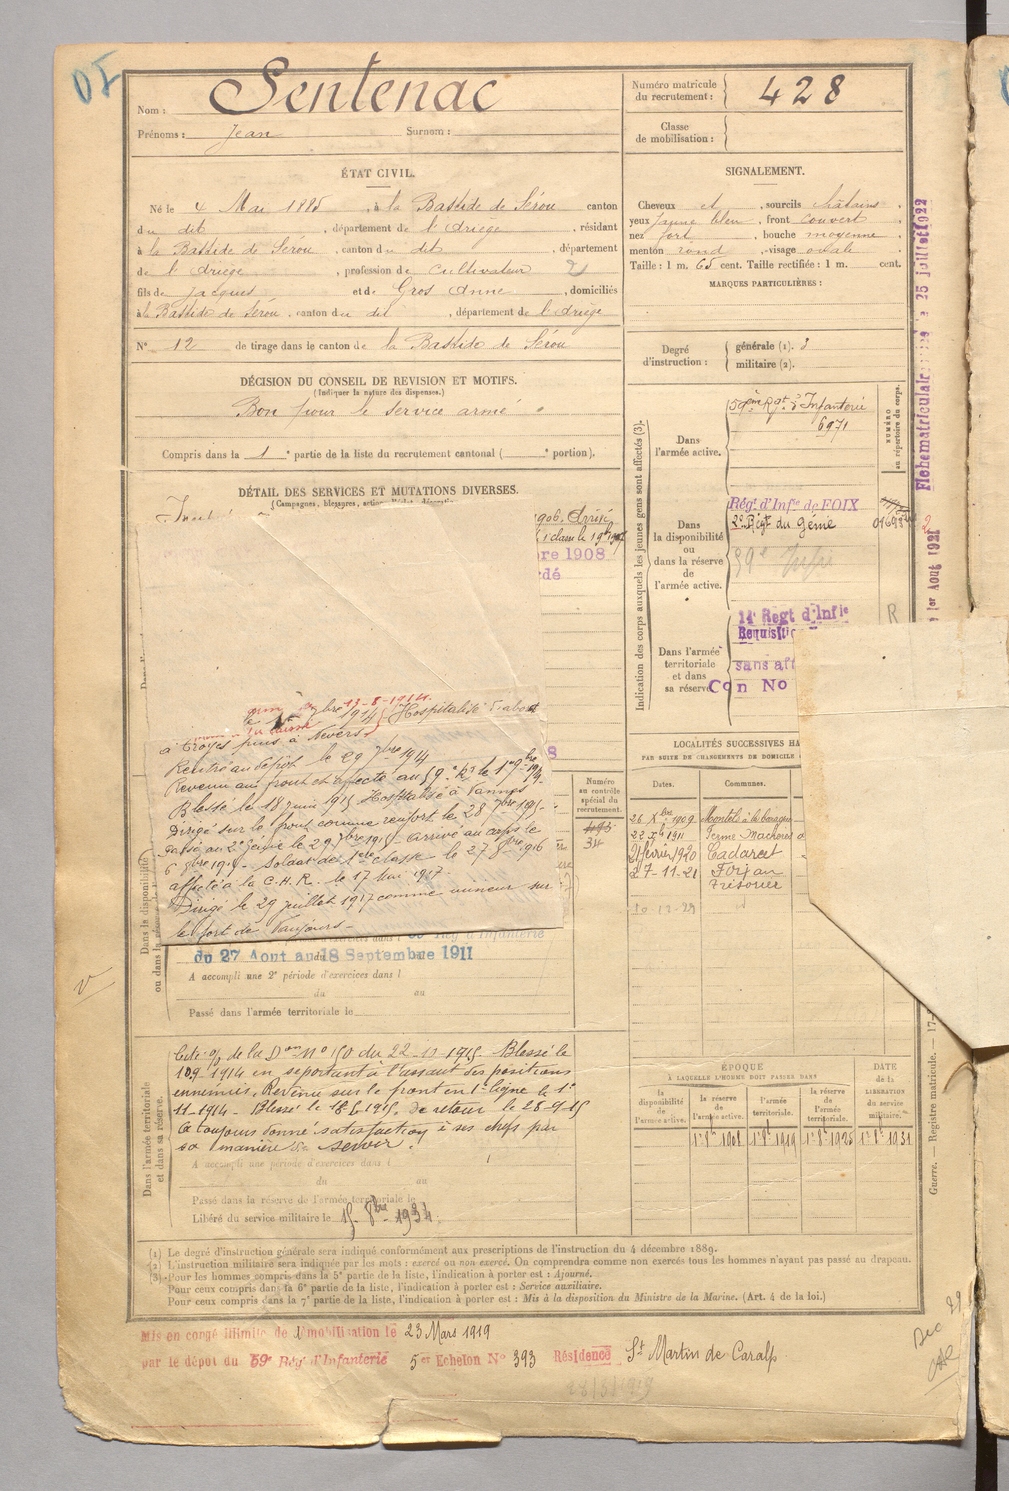 Nom : Sentenac
Prénoms : Jean Surnom :
Numéro matricule du recrutement : 428
Classe de mobilisation :
ÉTAT CIVIL.
Né le 4 Mai 1885, à la Bastide de Sérou canton
du dit, département de l'Ariège, résidant
à la Bastide de Sérou, canton du dit, département
de l'Ariège, profession de cultivateur
fils de Jacques et de Gros Anne, domiciliés
à la Bastide de Sérou, canton du dit, département de l'Ariège
N° 12 de tirage dans le canton de la Bastide de Sérou
SIGNALEMENT.
Cheveux et, sourcils châtains,
yeux jaune bleu, front couvert
nez fort, bouche moyenne
menton rond, visage ovale
Taille : 1 m. 65 cent. Taille rectifiée : 1 m. cent.
MARQUES PARTICULIÈRES :
Degré d'instruction : générale (1). 3
militaire (2).
DÉCISION DU CONSEIL DE REVISION ET MOTIFS.
(Indiquer la nature des dispenses.)
Bon pour le service armé
Compris dans la 1e partie de la liste du recrutement cantonal ( e portion).
DÉTAIL DES SERVICES ET MUTATIONS DIVERSES.
(Campagnes, blessures, action
906. Arrivé
re 1908
rdé
13-8-1914
1914 Hospitalisé d'abord
à Troyes puis à Nevers
Rentré au dépôt le 29 7bre 1914
Revenu au front et affecté au 59e
Blessé le 18 juin 1915 Hospitalisé à Vannes
Dirigé sur le front comme renfort le 28 7bre 1915-
Passé au 2e Génie le 29 7bre 1915 - arrivé au corps le
6 9bre 1915 - Soldat de 1ere classe le 27 8bre 1916
affecté à la C.H.R. le 17 Mai 1917.
Dirigé le 29 juillet 1917 comme mineur sur
le fort de Vaujours -
d'Infanterie
du 27 Aout au 18 Septembre 1911
A accompli une 2e période d'exercices dans l
du au
Passé dans l'armée territoriale le
Cité o/ de la Don N° 150 du 22-11-1915. Blessé le
1914 en se portant à l'assaut des positions
ennemies. Revenu sur le front en 1e ligne le 1er
11-1914 - Blessé le 18-6-1915, de retour le 28-9-15
A toujours donné satisfaction à ses chefs par
sa manière de servir.
A accompli une période d'exercices dans l
du au
Passé dans la réserve de l'armée territoriale le
Libéré du service militaire le 15 8bre 1934
Indication des corps auxquels les jeunes gens sont affectés (3).
Dans l'armée active.
59eme Rgt d'Infanterie
6971
NUMÉRO au répertoire du corps.
Dans la disponibilité ou dans la réserve de l'armée active.
Régt. d'Infie de FOIX
2e Régt du Génie
59e Infie
R
Dans l'armée territoriale et dans sa réserve
14e Regt d'Infie
Requisitio
sans aff
Con No
LOCALITÉS SUCCESSIVES HA
PAR SUITE DE CHANGEMENTS DE DOMICILE
Dates. Communes.
26 Xbre 1909
1911 Ferme
21 février 1920 Cadarcet
27-11-21 Foix
Trésorier
Numéro au contrôle spécial du recrutement.
34
ÉPOQUE
À LAQUELLE L'HOMME DOIT PASSER DANS
la disponibilité de l'armée active.
la réserve de l'armée active.
l'armée territoriale.
la réserve de l'armée territoriale.
DATE de la LIBÉRATION du service militaire.
1er 8bre 1908 1er 8bre 1919 1er 8bre 1925 1er 8bre 1931
Dans la disponibilité ou dans la
Dans l'armée territoriale et dans sa réserve.
(1) Le degré d'instruction générale sera indiqué conformément aux prescriptions de l'instruction du 4 décembre 1889.
(2) L'instruction militaire sera indiquée par les mots : exercé ou non exercé. On comprendra comme non exercés tous les hommes n'ayant pas passé au drapeau.
(3) Pour les hommes compris dans la 5e partie de la liste, l'indication à porter est : Ajourné.
Pour ceux compris dans la 6e partie de la liste, l'indication à porter est : Service auxiliaire.
Pour ceux compris dans la 7e partie de la liste, l'indication à porter est : Mis à la disposition du Ministre de la Marine. (Art. 4 de la loi.)
Mis en congé illimité de démobilisation le 23 Mars 1919
par le dépôt du 59e Rég. d'Infanterie 5e Echelon N° 393 Résidence St Martin de Caralp
Guerre. — Registre matricule. — 17-
25 juillet 1922
1er Aout 1921